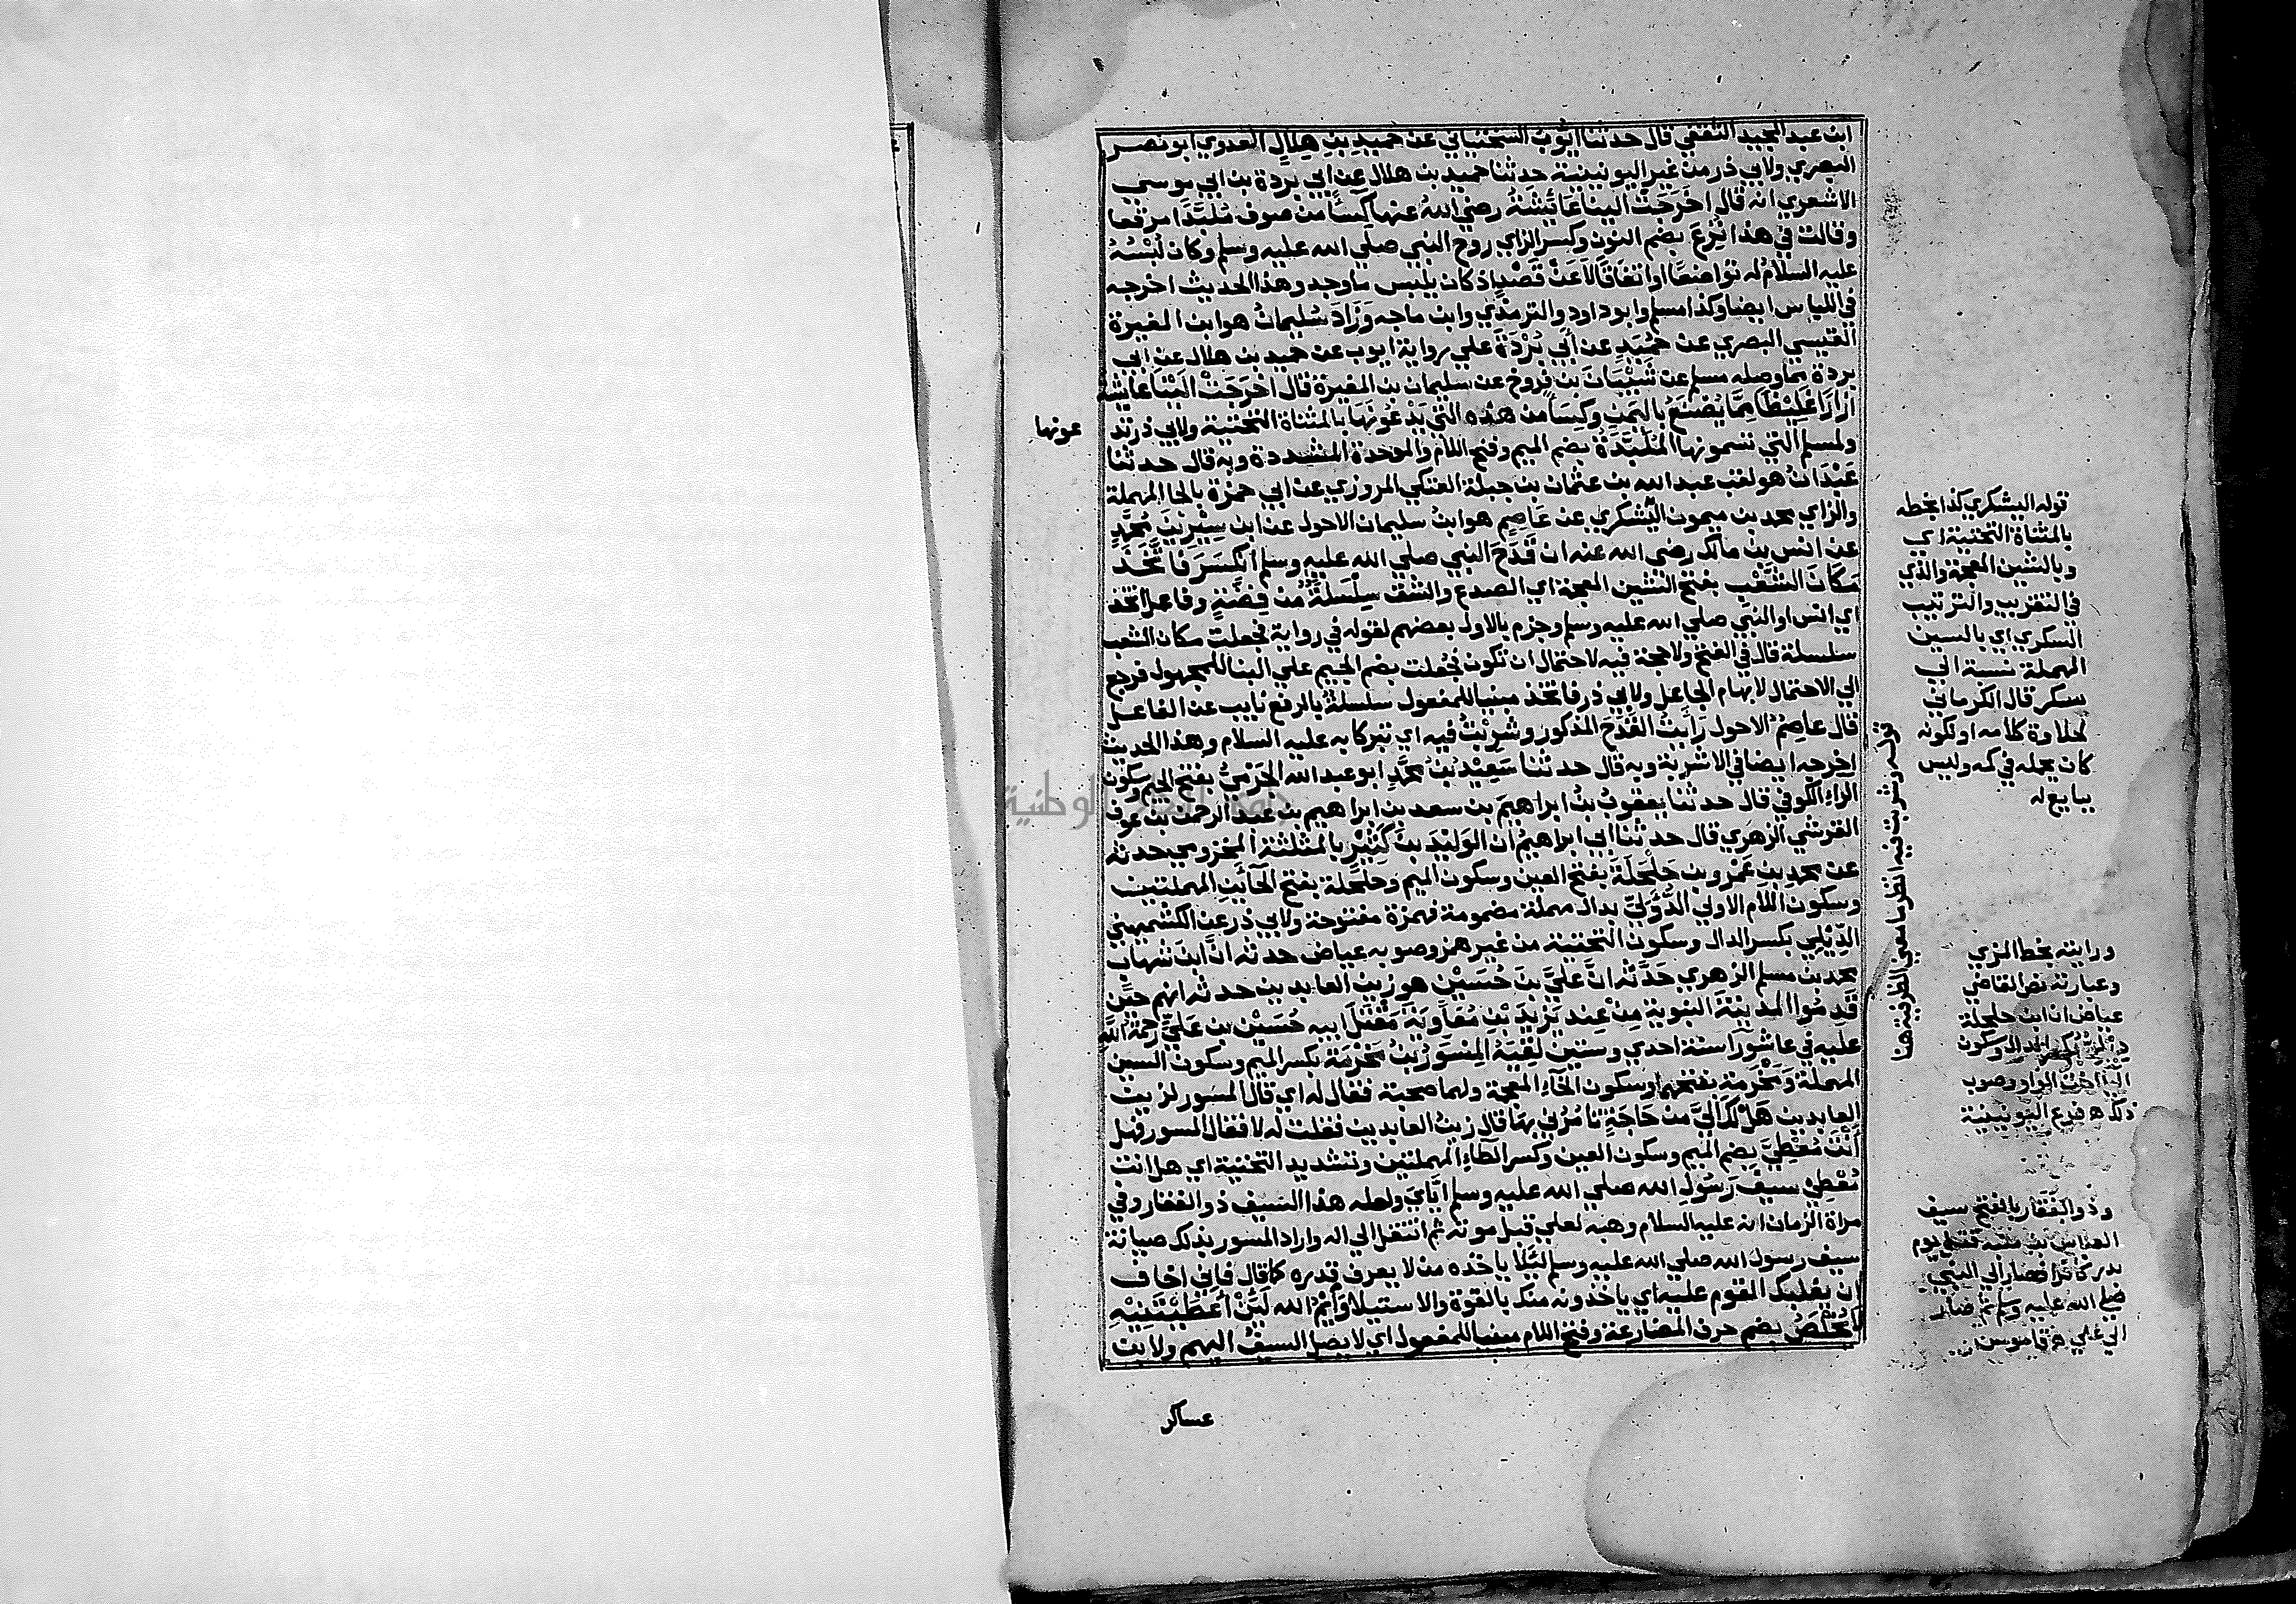 ابن عبد المجيد الثقفي قال حدثنا ايوب السختياني عن حميد بن هلال العدوي ابو نصر
البصري ولابي ذر من غير اليونينية حدثنا حميد بن هلال عن ابي بردة بن ابي موسي
الاشعري انه قال اخرجت الينا عائشة رضي الله عنها كساء من صوف ملبدا مرقعا
وقالت في هذا نزع بضم النون وكسر الزاي روح النبي صلي الله عليه وسلم وكان لبسه
عليه السلام له تواضعا او اتفاقا لا عن قصد اذ كان يلبس ما وجد وهذا الحديث اخرجه
في اللباس ايضا وكذا مسلم وابو داود والترمذي وابن ماجه وزاد سليمان هو ابن المغيرة
القيسي البصري عن حميد عن ابي بردة علي رواية ايوب عن حميد بن هلال عن ابي
بردة مما وصله مسلم عن شيبان بن فروخ عن سليمان بن المغيرة قال اخرجت الينا عايشة
ازارا غليظا مما يصنع باليمن وكساء من هذه التي يدعونها بالمثناة التحتية ولابي ذر تد
عونها
ولمسلم التي تسمونها الملبدة بضم الميم وفتح اللام والموحدة المشددة وبه قال حدثنا
عبدان هو لقب عبد الله بن عثمان بن جبلة العتكي المروزي عن ابي حمزة بالحا المهملة
والزاي محمد بن ميمون اليشكري عن عاصم هو ابن سليمان الاحول عن ابن سيرين محمد
عن انس بن مالك رضي الله عنه ان قدح النبي صلي الله عليه وسلم انكسر فاتخذ
مكان الشعب بفتح الشين المعجمة اي الصدع والشق سلسلة من فضة وفاعل اتخذ
اي انس او النبي صلي الله عليه وسلم وجزم بالاول بعضهم لقوله في رواية فجعلت مكان الشعب
سلسلة قال في الفتح ولا حجة فيه لاحتمال ان تكون فجعلت بضم الجيم علي البنا للمجهول فرجع
الي الاحتمال لابهام الجاعل ولابي ذر فاتخذ مبنيا للمفعول سلسلة بالرفع نايب عن الفاعل
قال عاصم الاحول رايت القدح المذكور وشربت فيه اي تبركا به عليه السلام وهذا الحديث
اخرجه ايضا في الاشربة وبه قال حدثنا سعيد بن محمد ابو عبد الله الجرمي بفتح الجيم وسكون
الراء الكوفي قال حدثنا يعقوب بن ابراهيم بن سعد بن ابراهيم بن عبد الرحمن بن عوف
القرشي الزهري قال حدثنا ابي ابراهيم ان الوليد بن كثير بالمثلثة المخزومي حدثه
عن محمد بن عمرو بن حلحلة بفتح العين وسكون الميم وحلحلة بفتح الحائين المهملتين
وسكون اللام الاولي الدؤلي بدال مهملة مضمومة فهمزة مفتوحة ولابي ذر عن الكشميهني
الديلي بكسر الدال وسكون التحتية من غير همز وصوبه عياض حدثه ان ابن شهاب
محمد بن مسلم الزهري حدثه ان علي بن حسين هو زين العابدين حدثه انهم حين
قدموا المدينة النبوية من عند يزيد بن معاوية مقتل ابيه حسين بن علي رحمة الله
عليه في عاشورا سنة احدي وستين لقيه المسور بن مخرمة بكسر الميم وسكون السين
المهملة ومخرمة بفتحها وسكون الخاء المعجمة ولهما صحبة فقال له اي قال المسور لزين
العابدين هل لك الي من حاجة تامرني بها قال زين العابدين فقلت له لا فقال المسور فهل
انت معطي بضم الميم وسكون العين وكسر الطاء المهملتين وتشديد التحتية اي هل انت
تعطي سيف رسول الله صلي الله عليه وسلم اياي ولعله هذا السيف ذو الفقار وفي
مراة الزمان انه عليه السلام وهبه لعلي قبل موته ثم انتقل الي اله واراد المسور بذلك صيانة
سيف رسول الله صلي الله عليه وسلم لئلا ياخذه من لا يعرف قدره كما قال فاني اخاف
ان يغلبك القوم عليه اي ياخذونه منك بالقوة والاستيلا وايم الله لئن اعطيتنيه
لا يخلص بضم حرف المضارعة وفتح اللام مبنيا للمفعول اي لا يصل السيف اليهم ولابن
عساكر
قوله اليشكري كذا بخطه
بالمثناة التحتية اي
وبالشين المعجمة والذي
في التقريب والترتيب
السكري اي بالسين
المهملة نسبة الي
سكر قال الكرماني
لحلاوة كلامه او لكونه
كان يحمله في كمه وليس
ببايع له
قوله وشربت فيه انظر ما معني الظرفية هنا
ورايته بخط المزي
وعبارته نص القاضي
عياض ان ابن حلحلة
ديلي بكسر الدال وسكون
اليا اخت الواو وصوب
ذلك ه فرع اليونينية
وذو الفقار بالفتح سيف
العاص بن منبه قتل يوم
بدر كافرا فصار الي النبي
صلي الله عليه وسلم ثم صار
الي علي ه قاموس